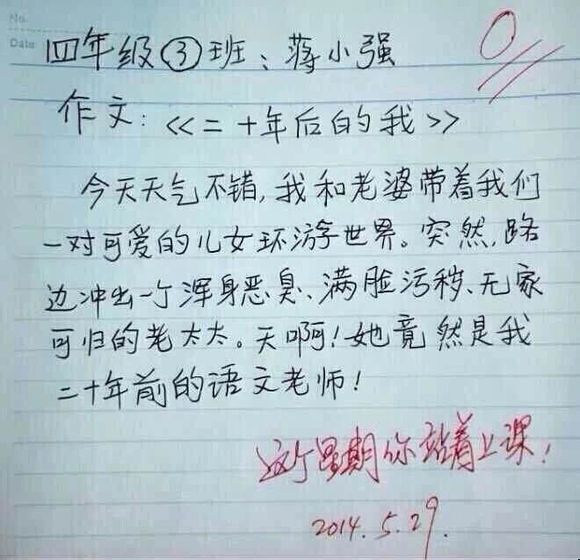 No.
Date
0
四年级③班：蒋小强
作文：《二十年后的我》
今天天气不错，我和老婆带着我们
一对可爱的儿女环游世界。突然，路
边冲出一个浑身恶臭、满脸污秽、无家
可归的老太太。天啊！她竟然是我
二十年前的语文老师！
这个星期你站着上课！
2014.5.29.